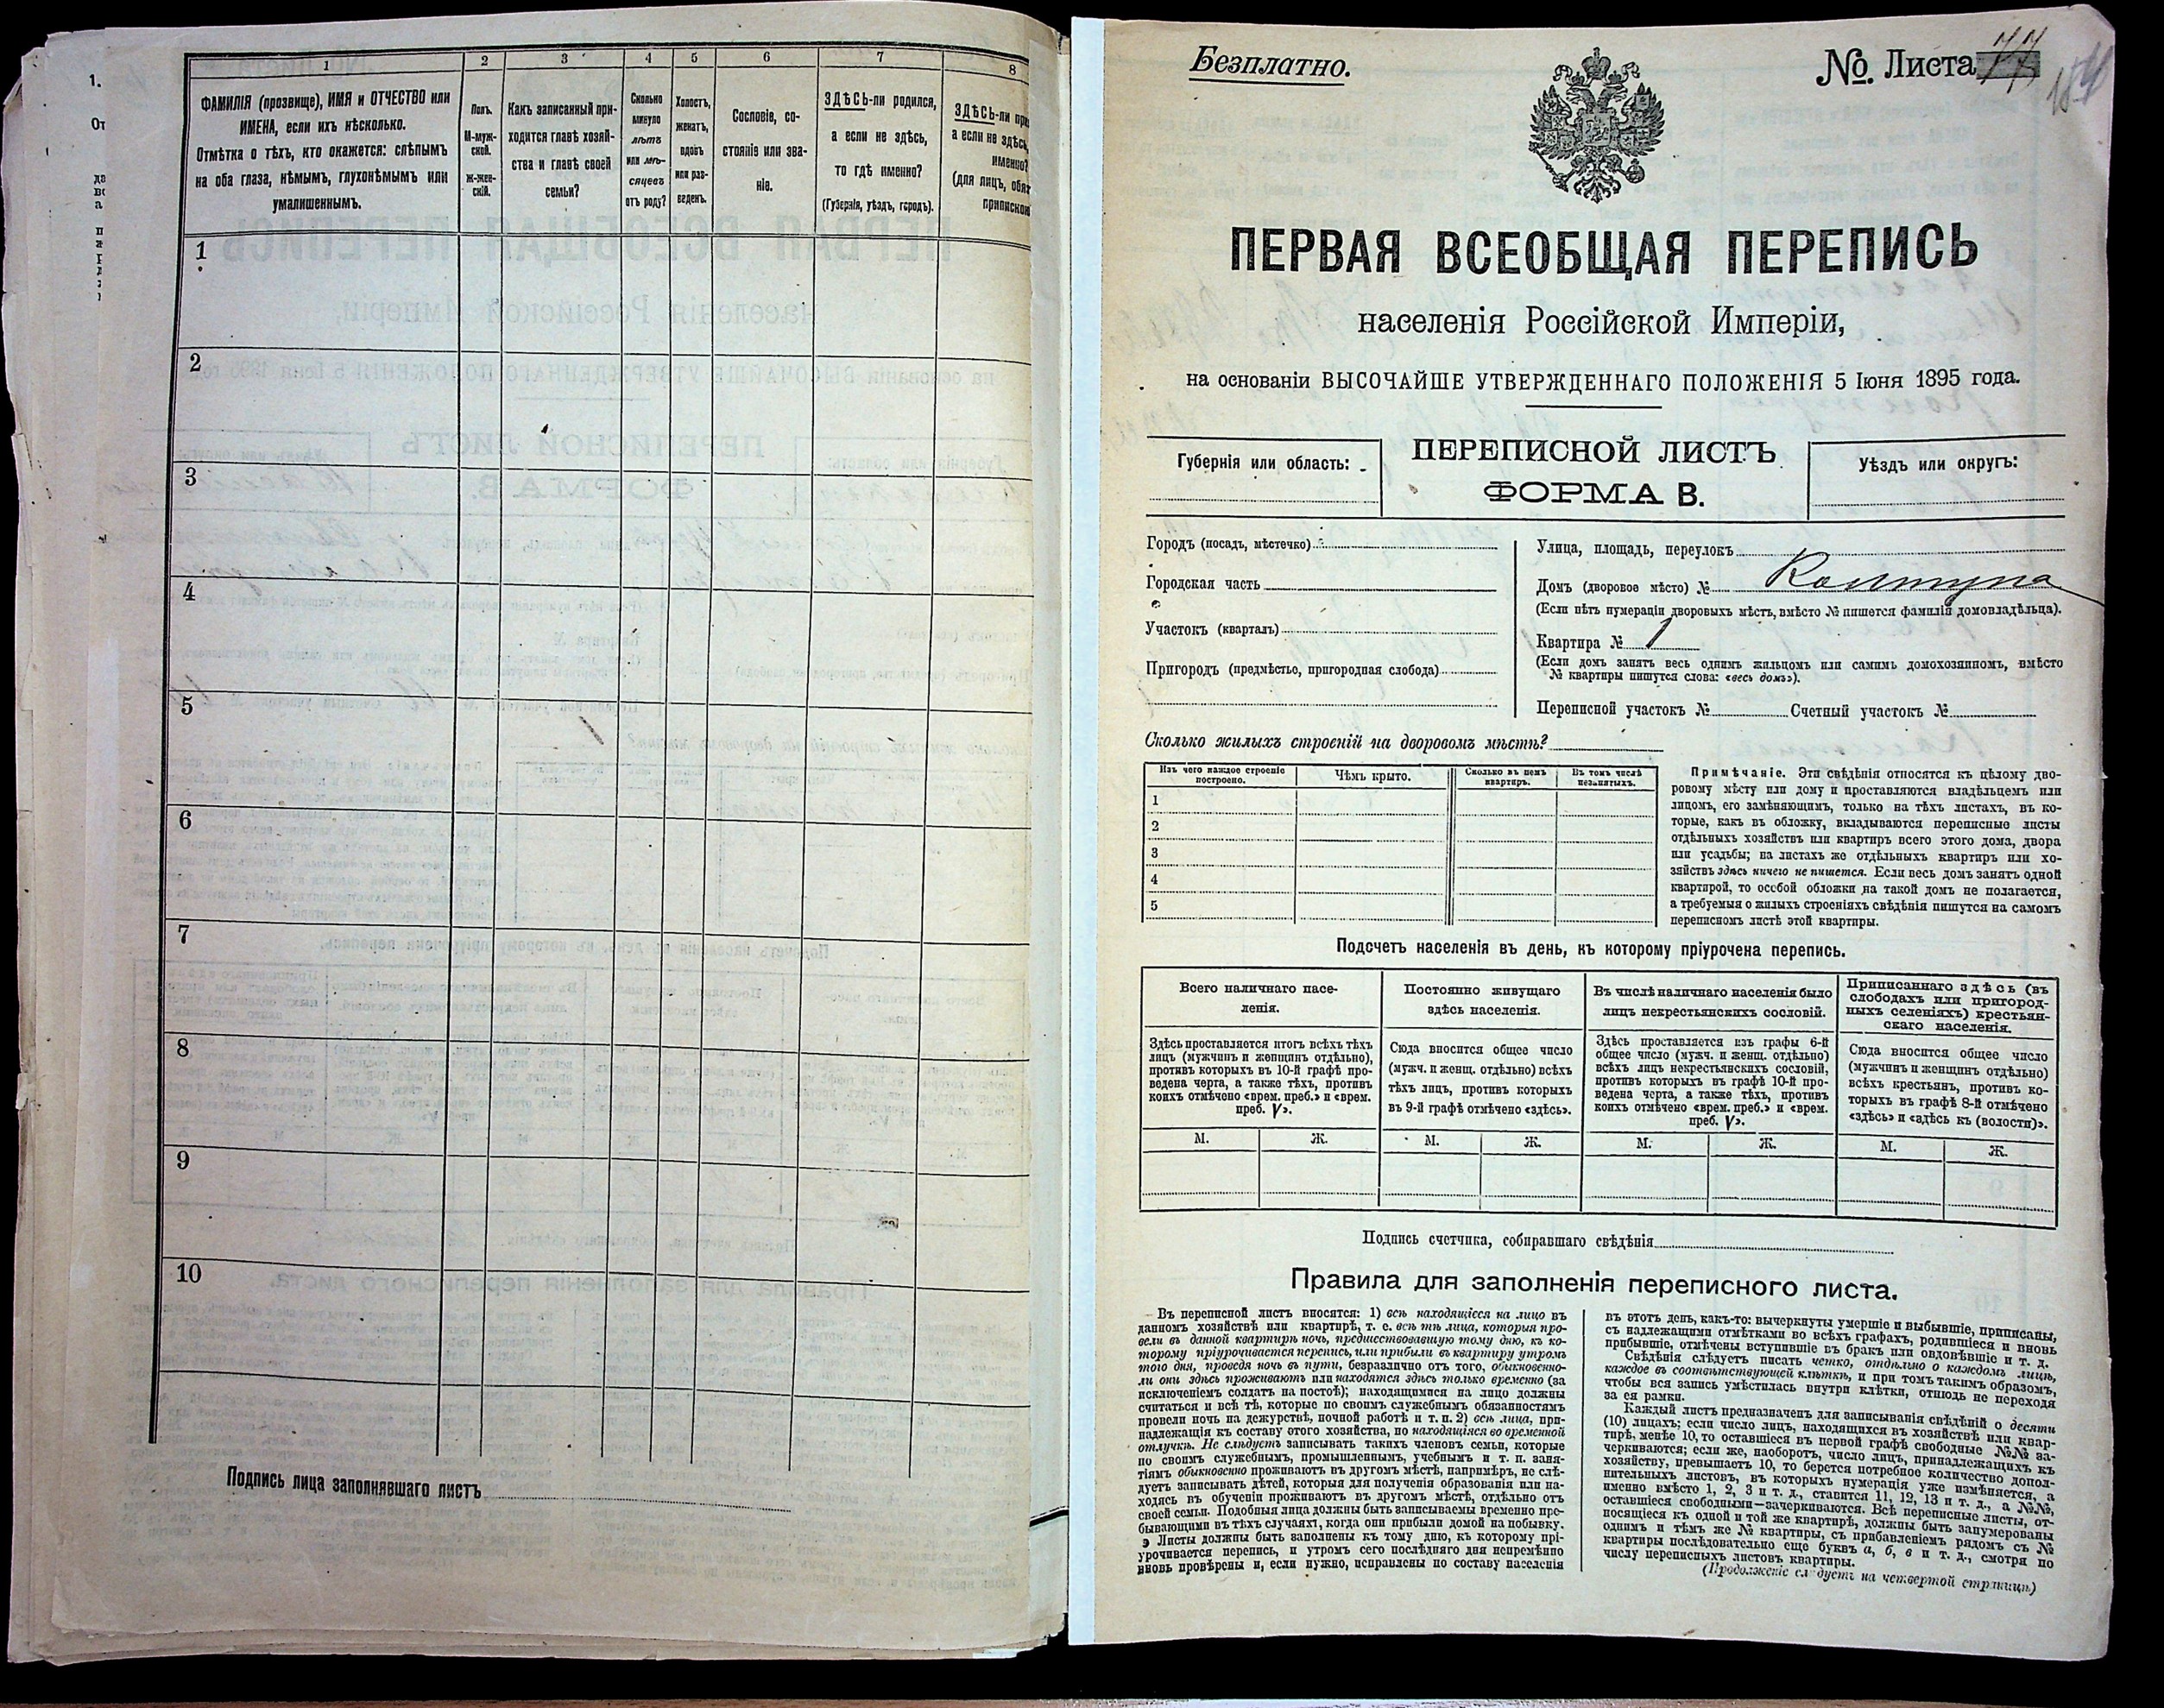 1.
От
1
2
3
4
5
6
7
8
ФАМИЛІЯ (прозвище), ИМЯ и ОТЧЕСТВО или
ИМЕНА, если ихъ нѣсколько.
Отмѣтка о тѣхъ, кто окажется: слѣпымъ
на оба глаза, нѣмымъ, глухонѣмымъ или
умалишеннымъ.
Полъ.
М-муж-
ской.
Ж-жен-
скій.
Какъ записанный при-
ходится главѣ хозяй-
ства и главѣ своей
семьи?
Сколько
минуло
лѣтъ
или мѣ-
сяцевъ
отъ роду?
Холостъ,
женатъ,
вдовъ
или раз-
веденъ.
Сословіе, со-
стояніе или зва-
ніе.
ЗДѢСЬ-ли родился,
а если не здѣсь,
то гдѣ именно?
(Губернія, уѣздъ, городъ).
ЗДѢСЬ-ли при
а если не здѣсь,
именно?
(для лицъ, обяз
припискою
1
2
3
4
5
6
7
8
9
10
Подпись лица заполнявшаго листъ
Безплатно.
№ Листа 77
ПЕРВАЯ ВСЕОБЩАЯ ПЕРЕПИСЬ
населенія Россійской Имперіи,
на основаніи ВЫСОЧАЙШЕ УТВЕРЖДЕННАГО ПОЛОЖЕНІЯ 5 Іюня 1895 года.
Губернія или область:
ПЕРЕПИСНОЙ ЛИСТЪ
ФОРМА В.
Уѣздъ или округъ:
Городъ (посадъ, мѣстечко)
Городская часть
Участокъ (кварталъ)
Пригородъ (предмѣстье, пригородная слобода)
Улица, площадь, переулокъ
Домъ (дворовое мѣсто) № Колтупа
(Если нѣтъ нумераціи дворовыхъ мѣстъ, вмѣсто № пишется фамилія домовладѣльца).
Квартира № 1
(Если домъ занятъ весь однимъ жильцомъ или самимъ домохозяиномъ, вмѣсто
№ квартиры пишутся слова: «весь домъ»).
Переписной участокъ № Счетный участокъ №
Сколько жилыхъ строеній на дворовомъ мѣстѣ?
Изъ чего каждое строеніе
построено.
Чѣмъ крыто.
Сколько въ немъ
квартиръ.
Въ томъ числѣ
незанятыхъ.
1
2
3
4
5
Примѣчаніе. Эти свѣдѣнія относятся къ цѣлому дво-
ровому мѣсту или дому и проставляются владѣльцемъ или
лицомъ, его замѣняющимъ, только на тѣхъ листахъ, въ ко-
торые, какъ въ обложку, вкладываются переписные листы
отдѣльныхъ хозяйствъ или квартиръ всего этого дома, двора
или усадьбы; на листахъ же отдѣльныхъ квартиръ или хо-
зяйствъ здѣсь ничего не пишется. Если весь домъ занятъ одной
квартирой, то особой обложки на такой домъ не полагается,
а требуемыя о жилыхъ строеніяхъ свѣдѣнія пишутся на самомъ
переписномъ листѣ этой квартиры.
Подсчетъ населенія въ день, къ которому пріурочена перепись.
Всего наличнаго насе-
ленія.
Постоянно живущаго
здѣсь населенія.
Въ числѣ наличнаго населенія было
лицъ некрестьянскихъ сословій.
Приписаннаго здѣсь (въ
слободахъ или пригород-
ныхъ селеніяхъ) крестьян-
скаго населенія.
Здѣсь проставляется итогъ всѣхъ тѣхъ
лицъ (мужчинъ и женщинъ отдѣльно),
противъ которыхъ въ 10-й графѣ про-
ведена черта, а также тѣхъ, противъ
коихъ отмѣчено «врем. преб.» и «врем.
преб. V».
Сюда вносится общее число
(мужч. и женщ. отдѣльно) всѣхъ
тѣхъ лицъ, противъ которыхъ
въ 9-й графѣ отмѣчено «здѣсь».
Здѣсь проставляется изъ графы 6-й
общее число (мужч. и женщ. отдѣльно)
всѣхъ лицъ некрестьянскихъ сословій,
противъ которыхъ въ графѣ 10-й про-
ведена черта, а также тѣхъ, противъ
коихъ отмѣчено «врем. преб.» и «врем.
преб. V».
Сюда вносится общее число
(мужчинъ и женщинъ отдѣльно)
всѣхъ крестьянъ, противъ ко-
торыхъ въ графѣ 8-й отмѣчено
«здѣсь» и «здѣсь къ (волости)».
М. Ж. М. Ж. М. Ж. М. Ж.
Подпись счетчика, собиравшаго свѣдѣнія
Правила для заполненія переписного листа.
Въ переписной листъ вносятся: 1) всѣ находящіеся на лицо въ
данномъ хозяйствѣ или квартирѣ, т. е. всѣ тѣ лица, которыя про-
вели въ данной квартирѣ ночь, предшествовавшую тому дню, къ ко-
торому пріурочивается перепись, или прибыли въ квартиру утромъ
того дня, проведя ночь въ пути, безразлично отъ того, обыкновенно-
ли они здѣсь проживаютъ или находятся здѣсь только временно (за
исключеніемъ солдатъ на постоѣ); находящимися на лицо должны
считаться и всѣ тѣ, которые по своимъ служебнымъ обязанностямъ
провели ночь на дежурствѣ, ночной работѣ и т. п. 2) всѣ лица, при-
надлежащія къ составу этого хозяйства, но находящіяся во временной
отлучкѣ. Не слѣдуетъ записывать такихъ членовъ семьи, которые
по своимъ служебнымъ, промышленнымъ, учебнымъ и т. п. заня-
тіямъ обыкновенно проживаютъ въ другомъ мѣстѣ, напримѣръ, не слѣ-
дуетъ записывать дѣтей, которыя для полученія образованія или на-
ходясь въ обученіи проживаютъ въ другомъ мѣстѣ, отдѣльно отъ
своей семьи. Подобныя лица должны быть записываемы временно пре-
бывающими въ тѣхъ случаяхъ, когда они прибыли домой на побывку.
Листы должны быть заполнены къ тому дню, къ которому прі-
урочивается перепись, и утромъ сего послѣдняго дня непремѣнно
вновь провѣрены и, если нужно, исправлены по составу населенія
въ этотъ день, какъ-то: вычеркнуты умершіе и выбывшіе, приписаны,
съ надлежащими отмѣтками во всѣхъ графахъ, родившіеся и вновь
прибывшіе, отмѣчены вступившіе въ бракъ или овдовѣвшіе и т. д.
Свѣдѣнія слѣдуетъ писать четко, отдѣльно о каждомъ лицѣ,
каждое въ соотвѣтствующей клѣткѣ, и при томъ такимъ образомъ,
чтобы вся запись умѣстилась внутри клѣтки, отнюдь не переходя
за ея рамки.
Каждый листъ предназначенъ для записыванія свѣдѣній о десяти
(10) лицахъ; если число лицъ, находящихся въ хозяйствѣ или квар-
тирѣ, менѣе 10, то оставшіеся въ первой графѣ свободные №№ за-
черкиваются; если же, наоборотъ, число лицъ, принадлежащихъ къ
хозяйству, превышаетъ 10, то берется потребное количество допол-
нительныхъ листовъ, въ которыхъ нумерація уже измѣняется, а
именно вмѣсто 1, 2, 3 и т. д., ставится 11, 12, 13 и т. д., а №№,
оставшіеся свободными—зачеркиваются. Всѣ переписные листы, от-
носящіеся къ одной и той же квартирѣ, должны быть занумерованы
однимъ и тѣмъ же № квартиры, съ прибавленіемъ рядомъ съ №
квартиры послѣдовательно еще буквъ а, б, в и т. д., смотря по
числу переписныхъ листовъ квартиры.
(Продолженіе слѣдуетъ на четвертой страницѣ)